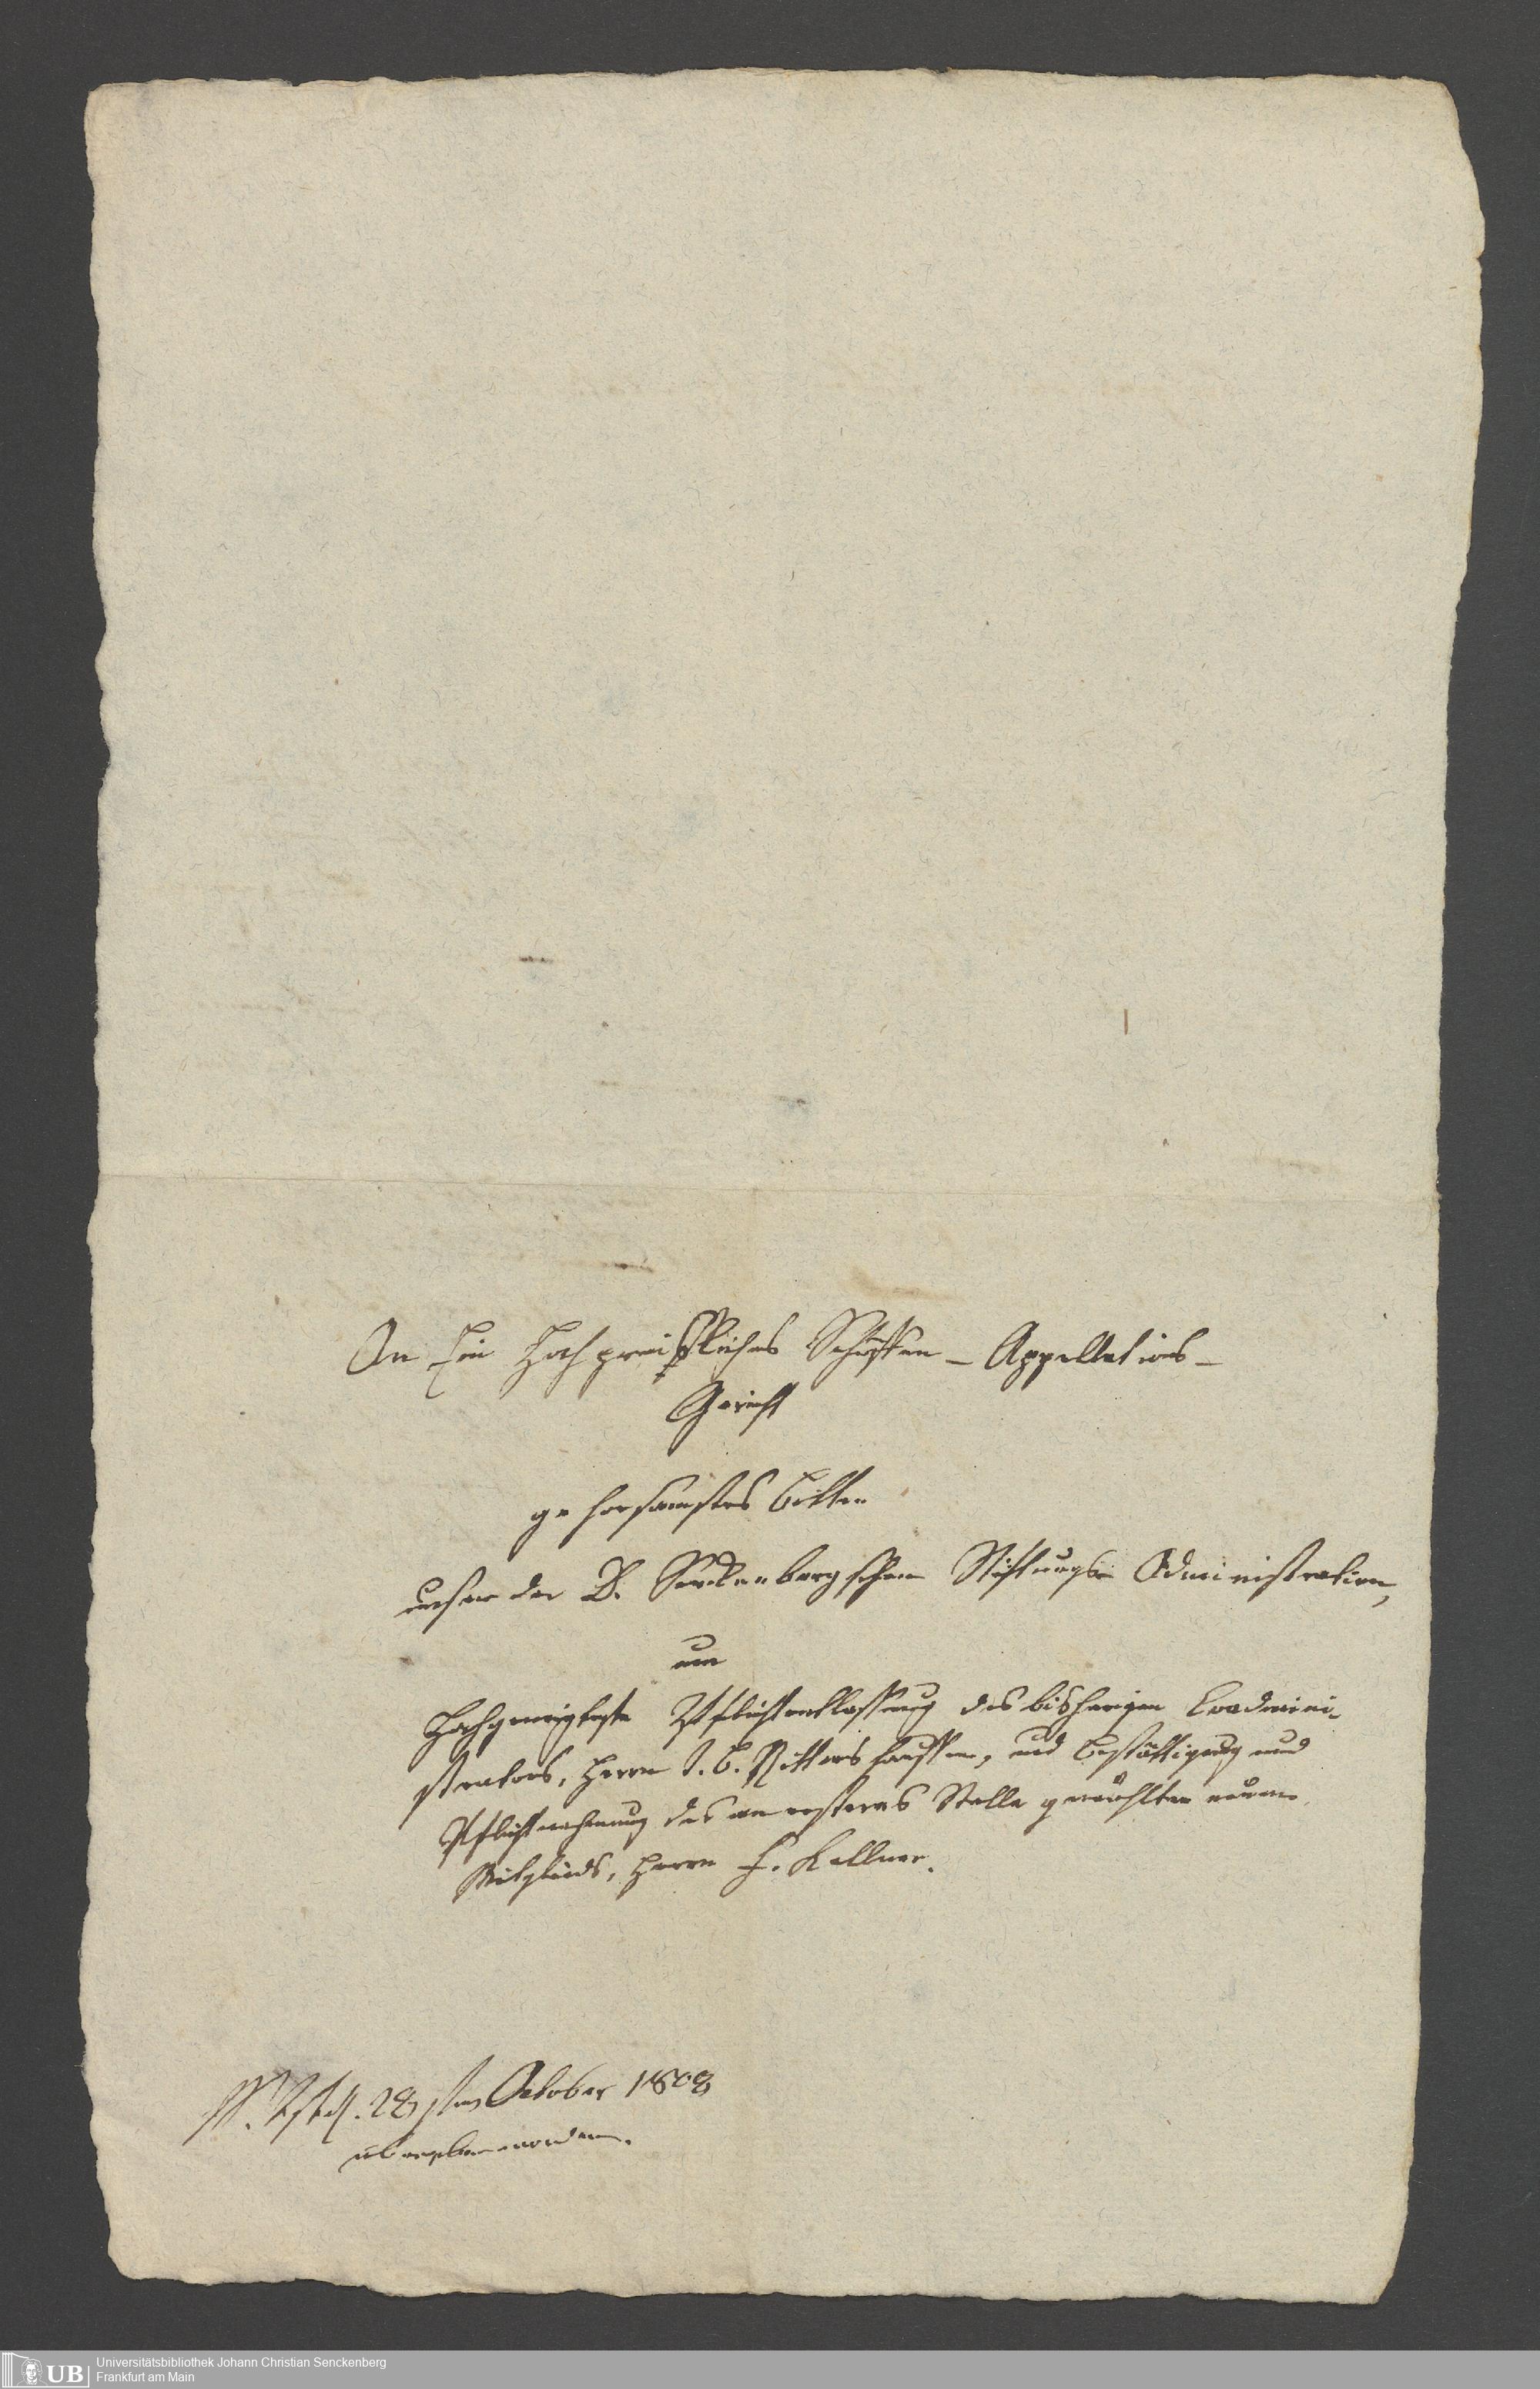 An Ein Hochpreißliches Schöffen-Appellations-
Gericht
gehorsamstes Bitten
unser der D. Senckenbergschen Stiftungs-Administration,
um
Hochgeneigteste Pflichtentlassung des bisherigen Coadmini-
strators, Herrn J. C. Rittershaussen, und Bestättigung und
Pflichtnehmung des an ersteres Stelle gewählten neuen
Mitglieds, Herrn C. Kellner.
28sten October 1808
übergeben worden.
UB
Universitätsbibliothek Johann Christian Senckenberg
Frankfurt am Main